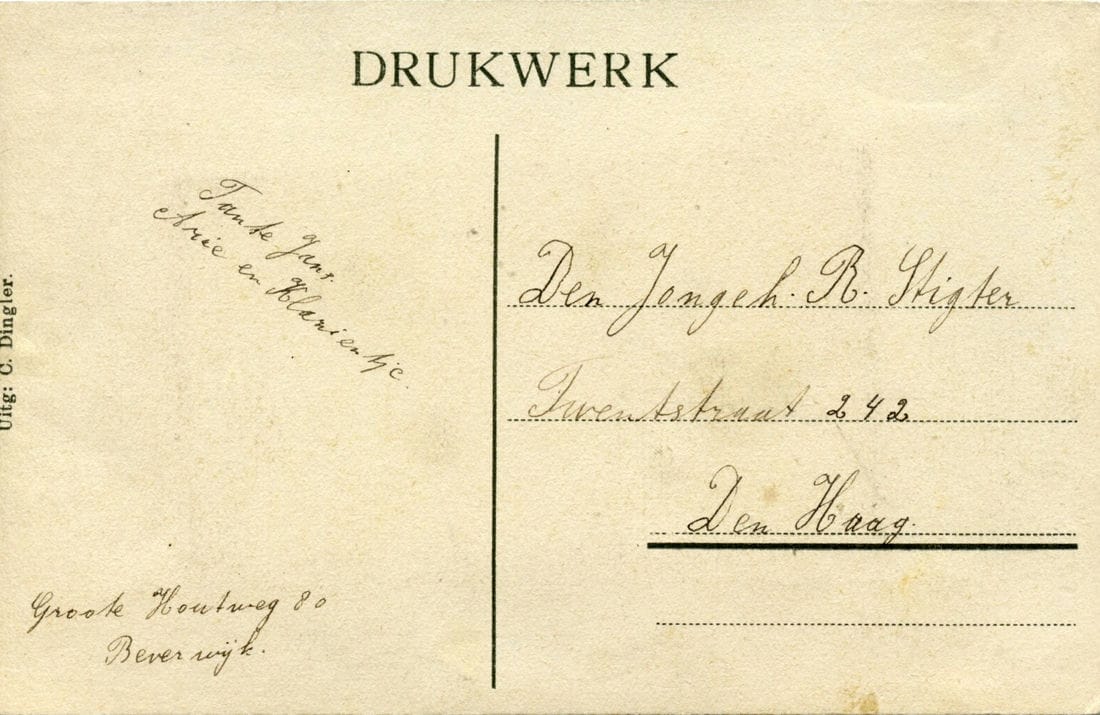 DRUKWERK
Tante Jans.
Arie en Klarientje.
Groote Houtweg 80
Beverwijk.
Uitg: C. Dingler.
Den Jongeh. R. Stigter
Twentstraat 242
Den Haag.